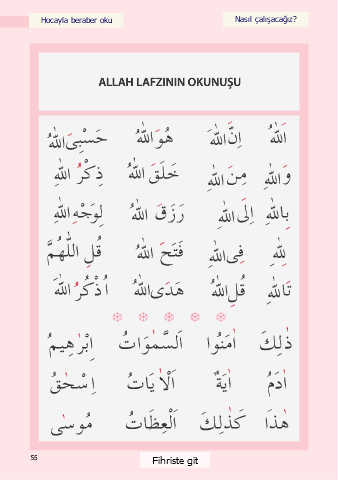 Hocayla beraber oku
Nasıl çalışacağız?
ALLAH LAFZININ OKUNUŞU
اَللّٰهُ اِنَّ اللّٰهَ هُوَ اللّٰهُ حَسْبِىَ اللّٰهُ
وَاللّٰهِ مِنَ اللّٰهِ خَلَقَ اللّٰهُ ذِكْرُ اللّٰهِ
بِاللّٰهِ اِلَى اللّٰهِ رَزَقَ اللّٰهُ لِوَجْهِ اللّٰهِ
لِلّٰهِ فِى اللّٰهِ فَتَحَ اللّٰهُ قُلِ اللّٰهُمَّ
تَاللّٰهِ قُلِ اللّٰهُ هَدَى اللّٰهُ اُذْكُرُ اللّٰهَ
ذٰلِكَ اٰمَنُوا اَلسَّمٰوَاتُ اِبْرٰهِيمُ
اٰدَمُ اٰيَةٌ اَلْاٰيَاتُ اِسْحٰقُ
هٰذَا كَذٰلِكَ اَلْعِظَاتُ مُوسٰى
55
Fihriste git